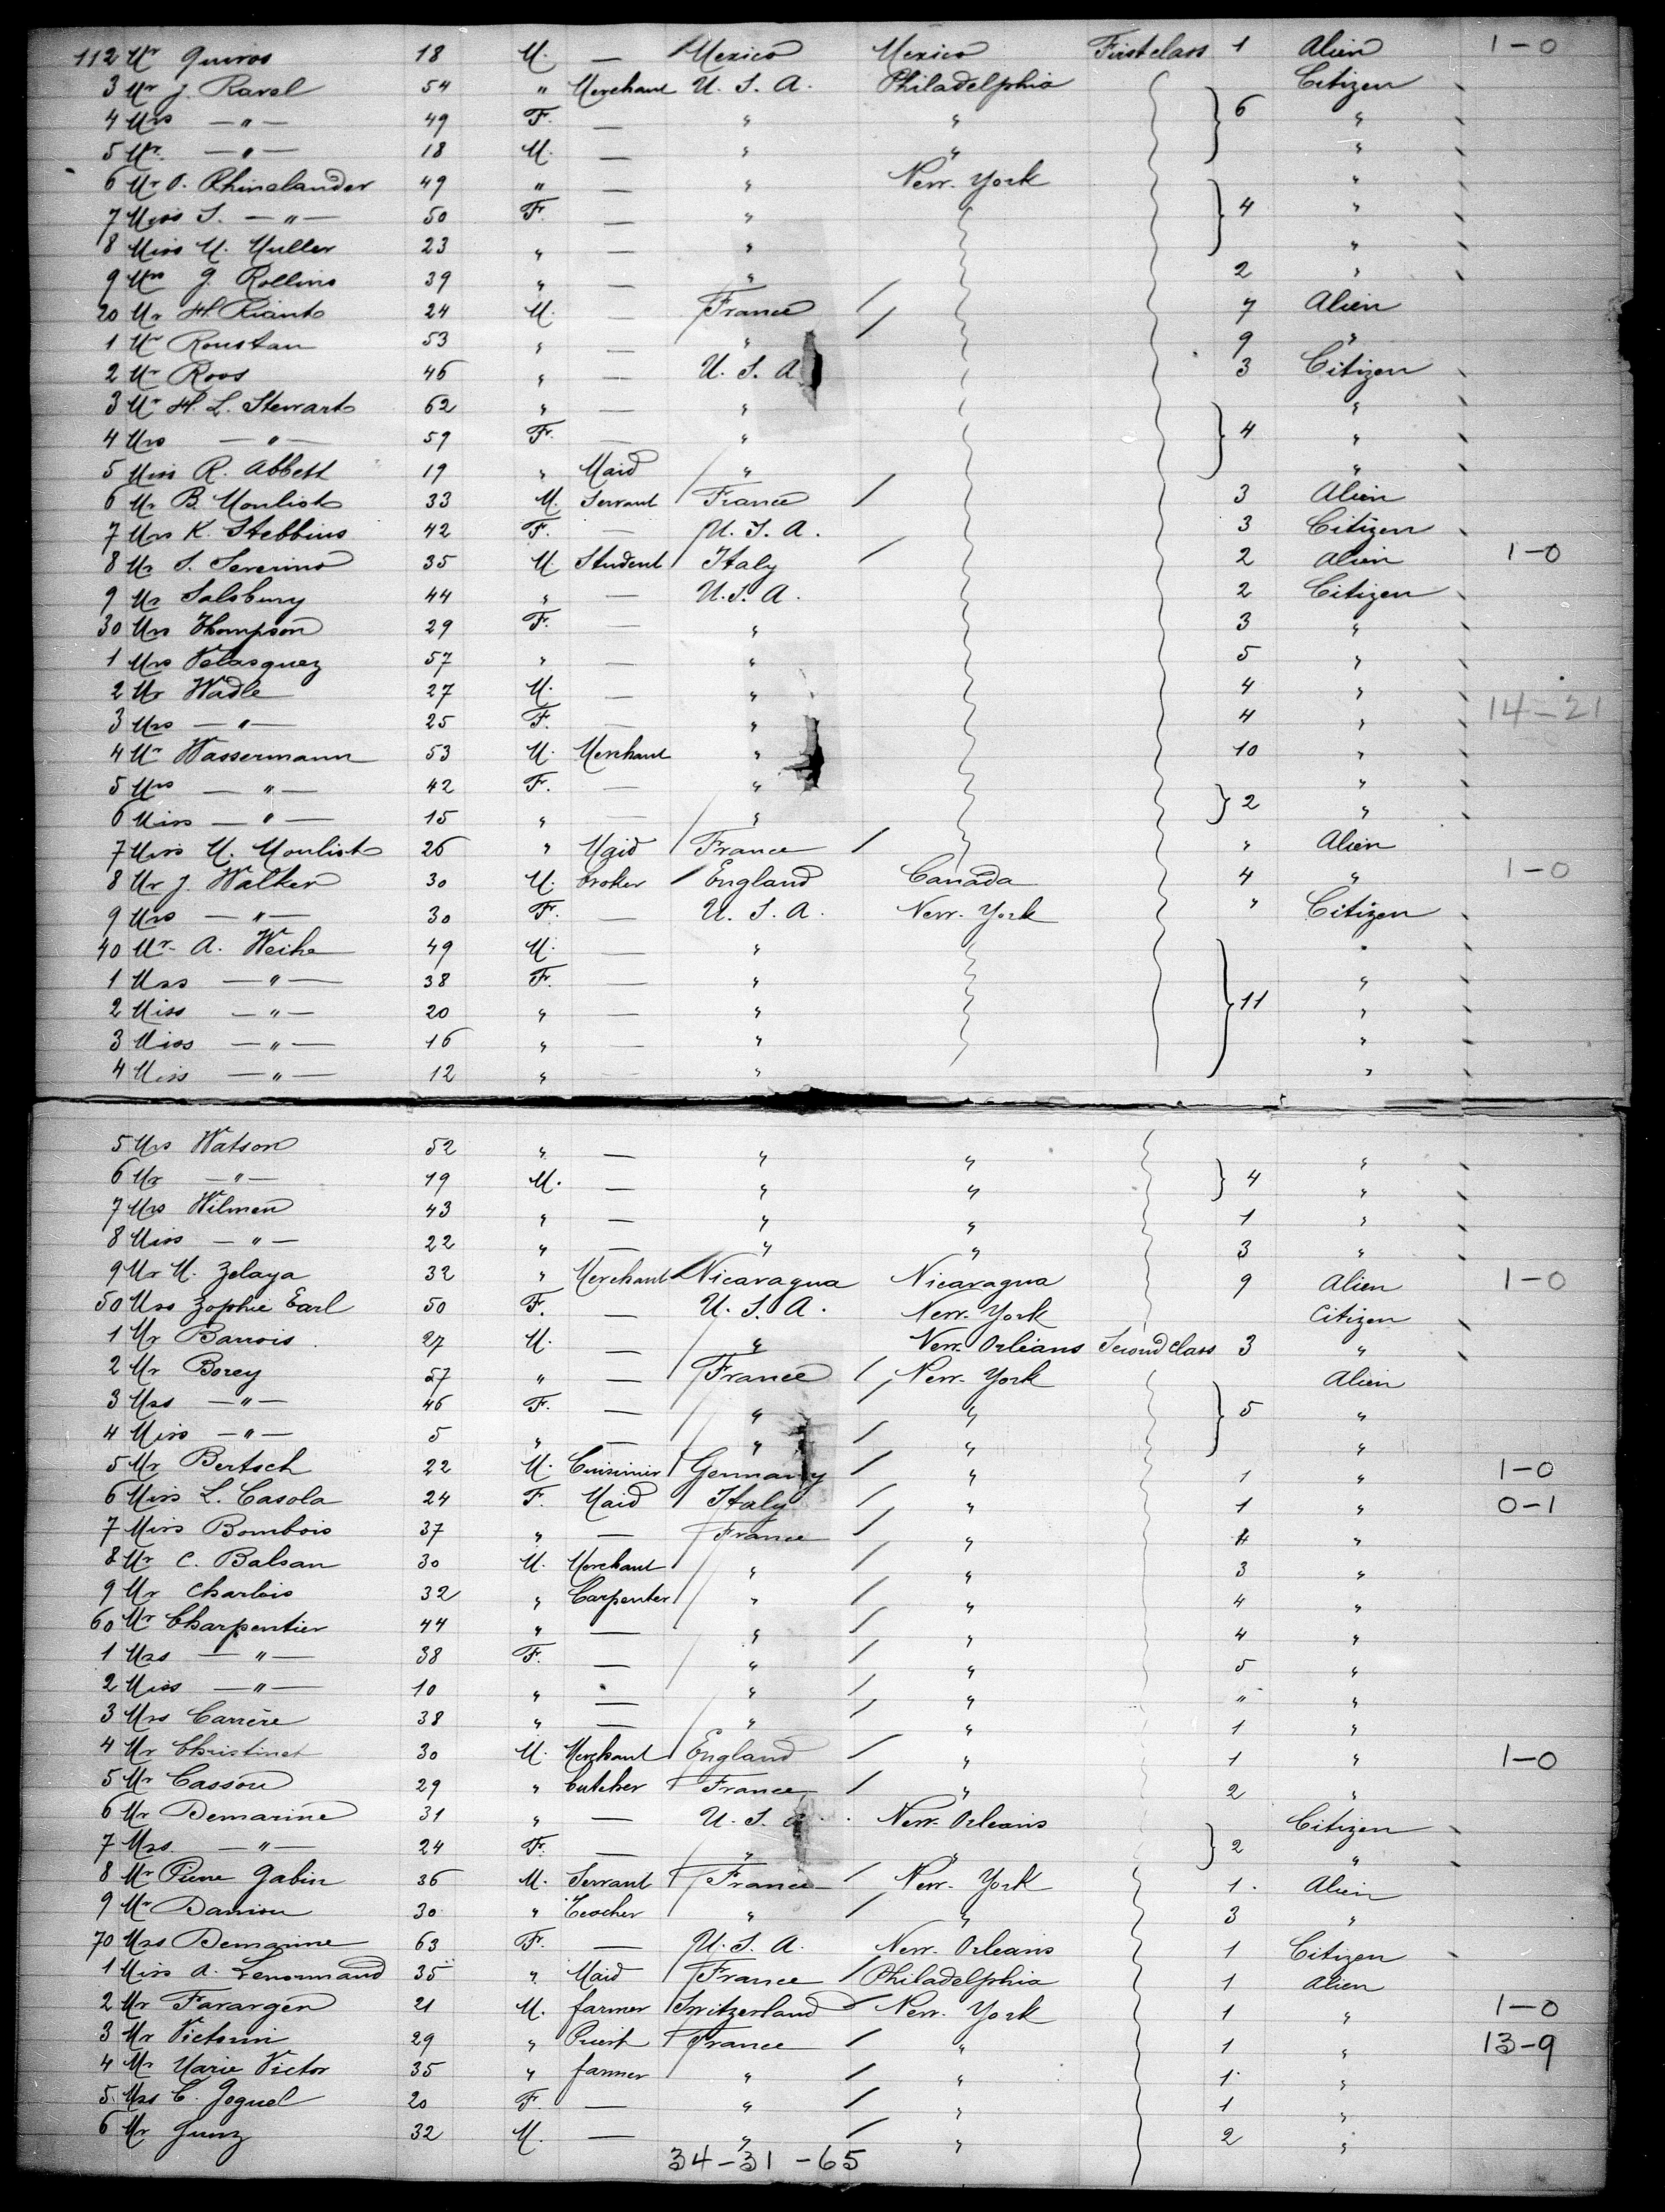 112 Mr Quiros 18 M. — Mexico Mexico First class 1 Alien 1-0
3 Mr J. Raval 54 " Merchant U.S.A. Philadelphia Citizen
4 Mrs —"— 49 F. — " " } 6 "
5 Mr. —"— 18 M. — " " "
6 Mr O. Rhinelander 49 " — " New-York "
7 Miss S. —"— 50 F. — " } 4 "
8 Miss M. Muller 23 " — " "
9 Mrs J. Rollins 39 " — " 2 "
20 Mr H. Riants 24 M. — France / 7 Alien
1 Mr Roustan 53 " — " / 9 "
2 Mr Roos 46 " — U.S.A 3 Citizen
3 Mr H. L. Stewart 62 " — " "
4 Mrs —"— 59 F. — " } 4 "
5 Miss R. Abbett 19 " Maid " "
6 Mr B. Moulist 33 M. Servant France / 3 Alien
7 Mrs K. Stebbins 42 F. — U.S.A. 3 Citizen
8 Mr S. Severino 35 M. Student Italy / 2 Alien 1-0
9 Mr Salsbury 44 " — U.S.A. 2 Citizen
30 Mrs Thompson 29 F. — " 3 "
1 Mrs Velasquez 57 " — " 5 "
2 Mr Wadle 27 M. — " 4 "
3 Mrs —"— 25 F. — " 4 " 14-21
4 Mr Wassermann 53 M. Merchant " 10 "
5 Mrs —"— 42 F. — " "
6 Miss —"— 15 " — " } 2 "
7 Miss M. Moulist 26 " Maid France / " Alien
8 Mr J. Walker 30 M. broker England Canada 4 " 1-0
9 Mrs —"— 30 F. — U.S.A. New-York " Citizen
40 Mr. A. Weihe 49 M. — " "
1 Mrs —"— 38 F. — " "
2 Miss —"— 20 " — " } 11 "
3 Miss —"— 16 " — " "
4 Miss —"— 12 " — " "
5 Mrs Watson 52 " — " " "
6 Mr —"— 19 M. — " " } 4 "
7 Mrs Wilmen 43 " — " " 1 "
8 Miss —"— 22 " — " " 3 "
9 Mr M. Zelaya 32 " Merchant Nicaragua Nicaragua 9 Alien 1-0
50 Mrs Zophie Earl 50 F. — U.S.A. New-York Citizen
1 Mr Barrois 27 M. — " New-Orleans Second class 3 "
2 Mr Borey 57 " — France / New-York Alien
3 Mrs —"— 46 F. — " " } 5 "
4 Miss —"— 5 " — " / " "
5 Mr Bertsch 22 M. Cuisinier Germany / " 1 " 1-0
6 Miss L. Casola 24 F. Maid Italy / " 1 " 0-1
7 Miss Bombois 37 " — France / " 4 "
8 Mr C. Balsan 30 M. Merchant " / " 3 "
9 Mr Charlois 32 " Carpenter " / " 4 "
60 Mr Charpentier 44 " — " / " 4 "
1 Mrs —"— 38 F. — " / " 5 "
2 Miss —"— 10 " — " / " " "
3 Mrs Carrère 38 " — " / " 1 "
4 Mr Christinet 30 M. Merchant England / " 1 " 1-0
5 Mr Cassou 29 " butcher France / " 2 "
6 Mr Demarine 31 " — U.S.A. New-Orleans Citizen
7 Mrs. —"— 24 F. — " " } 2 "
8 Mr Pierre Gabin 36 M. Servant France / New-York 1. Alien
9 Mr Darriou 30 " Teacher " / " 3 "
70 Mrs Demarine 63 F. — U.S.A. New-Orleans 1 Citizen
1 Miss A. Lenormand 35 " Maid France / Philadelphia 1 Alien
2 Mr Farargen 21 M. farmer Switzerland / New-York 1 " 1-0
3 Mr Victorin 29 " Priest France / " 1 " 13-9
4 Mr Marie Victor 35 " farmer " / " 1. "
5 Mrs C. Joguel 20 F. — " / " 1 "
6 Mr Gunz 32 M. — " / " 2 "
34-31-65